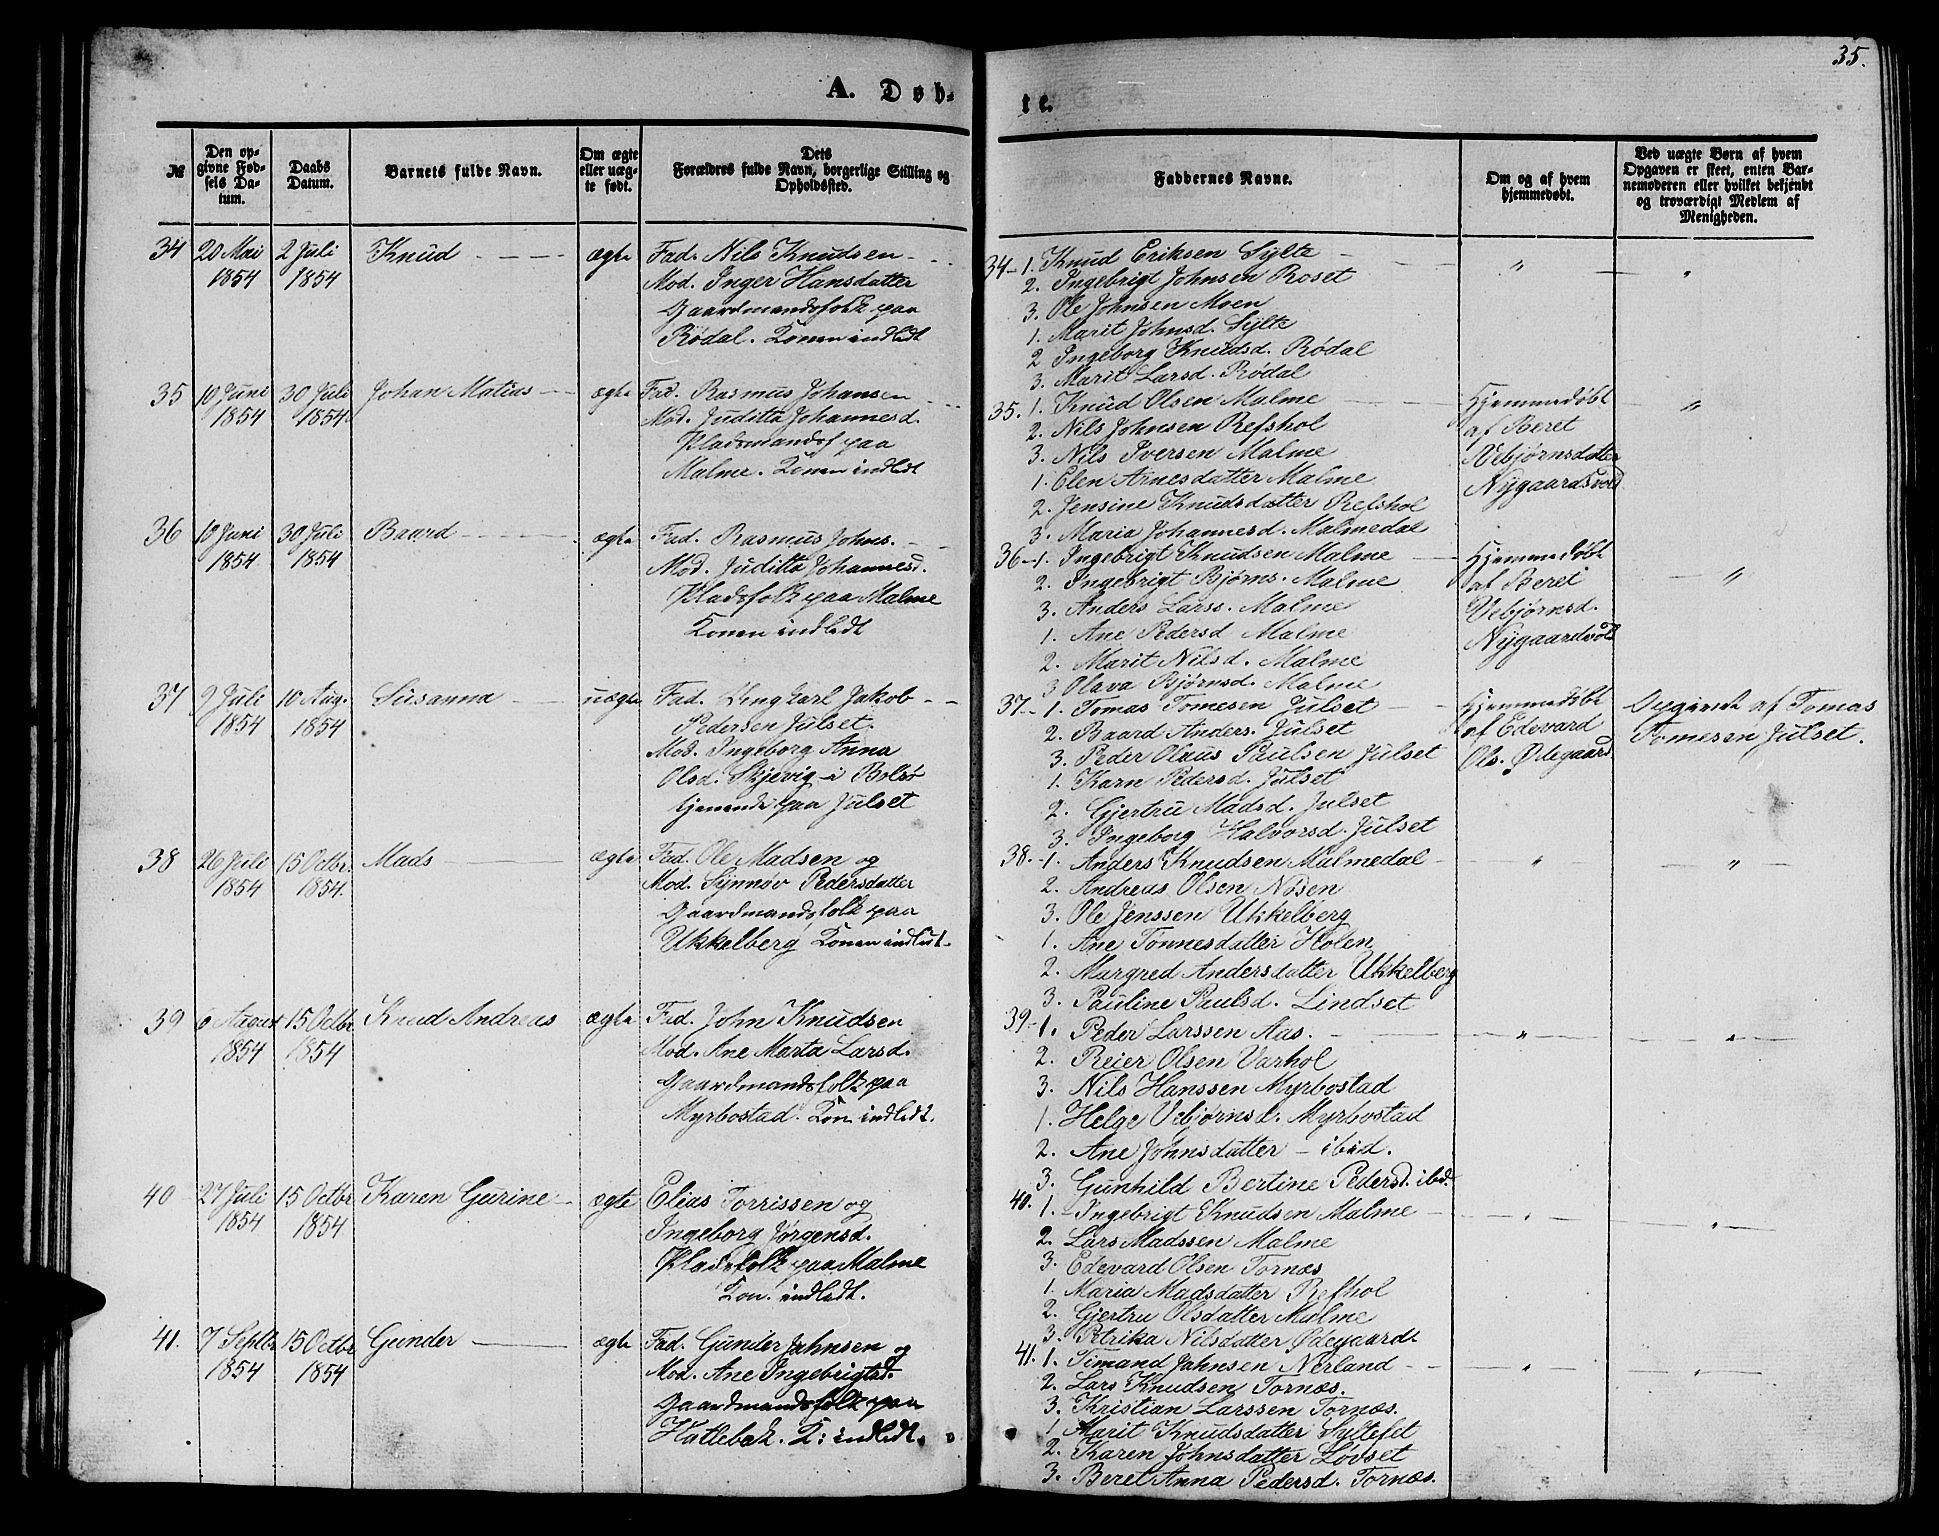 35.
A. Døb-
te.
№
Den op-
givne Fød-
sels Da-
tum.
Daabs
Datum.
Barnets fulde Navn.
Om ægte
eller uæg-
te født.
Dets
Forældres fulde Navn, borgerlige Stilling og
Opholdssted.
Faddernes Navne.
Om og af hvem
hjemmedøbt.
Ved uægte Børn af hvem
Opgaven er skeet, enten Bar-
nemoderen eller hvilket bekjendt
og troværdigt Medlem af
Menigheden.
34 20 Mai 2 Juli Knud ægte Fad. Nils Knudsen
1854 1854 Mod. Inger Hansdatter
Gaardmandsfolk paa
Rödal. Konen indledt
34-1. Knud Eriksen Sylte " "
2. Ingebrigt Johnsen Roset
3. Ole Johnsen Moen
1. Marit Johnsd. Sylte
2 Ingeborg Knudsd. Rödal
3. Marit Larsd. Rödal
35 10 Juni 30 Juli Johan Matias ægte Fad. Rasmus Johansen
1854 1854. Mod. Juditta Johannesd.
Pladsmandsf paa
Malme. Konen indledt
35. 1. Knud Olsen Malme Hjemmedöbt "
2. Nils Johnsen Refshol af Beret
3. Nils Iversen Malme Vebjørnsdatter
1. Elen Arnesdatter Malme Nygaardsvold
2. Jensine Knudsdatter Refshol
3. Maria Johannesd. Malmedal
36 10 Juni 30 Juli Baard ægte Fad. Rasmus Johns.
1854 1854 Mod. Juditta Johannesd.
Pladsfolk paa Malme
Konen indledt
36-1. Ingebrigt Knudsen Malme Hjemmedöbt "
2. Ingebrigt Bjørns. Malme af Beret
3. Anders Larss. Malme Vebjørnsd.
1. Ane Pedersd Malme Nygaardvold
2. Marit Nilsd. Malme
3 Olava Bjørnsd. Malme
37 9 Juli 10 Aug. Susanna uægte Fad. Ungkarl Jakob
1854 1854 Pedersen Julset.
Mod. Ingeborg Anna
Olsd. Skjevig i Bolsö
tjenende paa Julset
37- 1. Tomas Tomesen Julset Hjemmedöbt Opgivet af Tomas
2. Baard Anders. Julset af Edevard Tomesen Julset.
3. Peder Olaus Paulsen Julset Ols. Ødegaard
1. Karn Pedersd. Julset
2. Gjertru Madsd. Julset
3. Ingeborg Halvorsd. Julset
38 26 Juli 15 Octbr. Mads ægte Fad. Ole Madsen og
1854 1854. Mod. Synnöv Pedersdatter
Gaardmandsfolk paa
Ukkelberg Konen indledt.
38.-1. Anders Knudsen Malmedal " "
2. Andreas Olsen Nösen
3. Ole Jenssen Ukkelberg
1. Ane Tönnesdatter Holen
2. Margred Andersdatter Ukkelberg
3. Pauline Paulsd. Lindset
39 6 August 15 Octbr. Knud Andreas ægte Fad. John Knudsen
1854 1854 Mod. Ane Marta Larsd.
Gaardmandsfolk paa
Myrbostad. Kon. indledt.
39-1. Peder Larssen Aas. " "
2. Reier Olsen Varhol
3. Nils Hanssen Myrbostad
1. Helge Vebjørnsd. Myrbostad
2. Ane Johnsdatter - ibid.
3. Gunhild Bertine Pedersd. ibd.
40 27 Juli 15 Octbr Karen Gurine ægte Elias Torrissen og
1854 1854 Ingeborg Jørgensd.
Pladsfolk paa Malme
Kon. indledt.
40. 1. Ingebrigt Knudsen Malme " "
2. Lars Madssen Malme
3. Edevard Olsen Tornæs
1. Maria Madsdatter Refshol
2. Gjertru Olsdatter Malme
3. Petrika Nilsdatter Ödegaard
41. 7 Septbr 15 Octbr Gunder ægte Fad. Gunder Johnsen og
1854 1854 Mod. Ane Ingebrigtsd.
Gaardmandsfolk paa
Hatlebak. K: indledt.
41. 1. Timand Johnsen Nerland " "
2. Lars Knudsen Tornæs.
3. Kristian Larssen Tornæs.
1 Marit Knudsdatter Syltefet
2. Karen Johnsdatter Lövset
3. Beret Anna Pedersd. Tornæs.